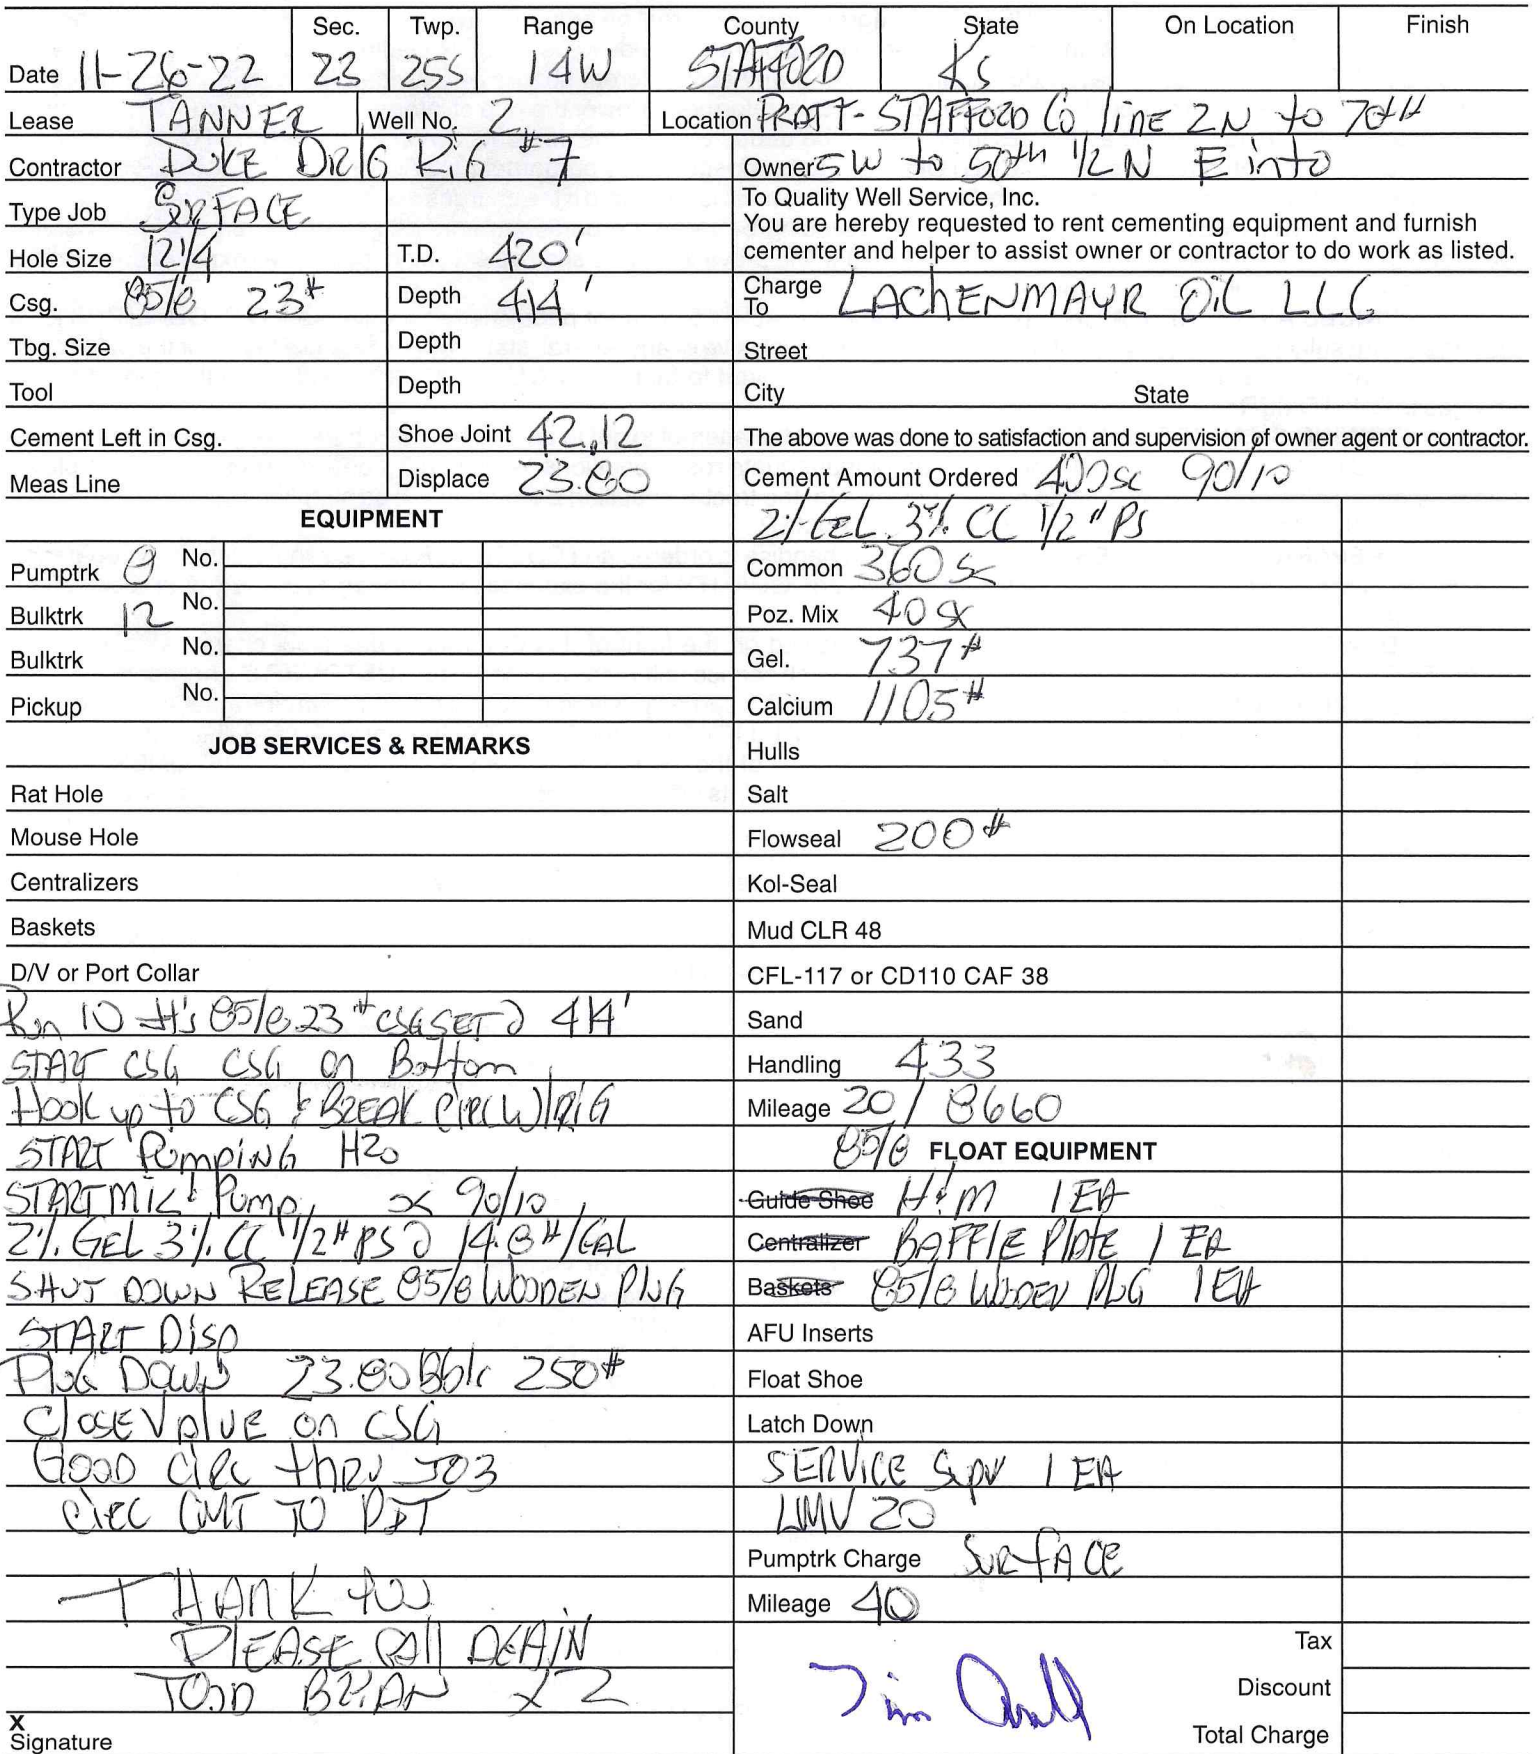 Sec. Twp. Range County State On Location Finish
Date 11-26-22 23 25S 14W STAFFORD Ks
Lease TANNER Well No. 2 Location PRATT-STAFFORD Co line 2N to 70th
Contractor DUKE DRLG RiG #7 Owner 5W to 50th 1/2 N E into
Type Job SURFACE To Quality Well Service, Inc.
You are hereby requested to rent cementing equipment and furnish
cementer and helper to assist owner or contractor to do work as listed.
Hole Size 12 1/4 T.D. 420'
Csg. 8 5/8 23# Depth 414' Charge To LAChENMAYR OiL LLC
Tbg. Size Depth Street
Tool Depth City State
Cement Left in Csg. Shoe Joint 42.12 The above was done to satisfaction and supervision of owner agent or contractor.
Meas Line Displace 23.80 Cement Amount Ordered 400 sx 90/10
EQUIPMENT 2% GEL 3% CC 1/2# PS
Pumptrk 8 No. Common 360 sx
Bulktrk 12 No. Poz. Mix 40 sx
Bulktrk No. Gel. 737#
Pickup No. Calcium 1105#
JOB SERVICES & REMARKS Hulls
Rat Hole Salt
Mouse Hole Flowseal 200#
Centralizers Kol-Seal
Baskets Mud CLR 48
D/V or Port Collar CFL-117 or CD110 CAF 38
Run 10 Jt's 8 5/8 23# CSG SET @ 414' Sand
START CSG CSG on Bottom Handling 433
Hook up to CSG & BREAK CIRC W/RiG Mileage 20 / 8660
START PumpiNG H2o 8 5/8 FLOAT EQUIPMENT
START MIX & Pump sx 90/10 Guide Shoe H&M 1 EA
2% GEL 3% CC 1/2# PS @ 14.8 #/GAL Centralizer BAFFlE PlAtE 1 EA
SHUT DOWN RELEASE 8 5/8 WOODEN PLUG Baskets 8 5/8 WOODEN PLUG 1 EA
START Disp AFU Inserts
PluG DOWN 23.80 Bbls 250# Float Shoe
CloSE VAlVE on CSG Latch Down
GOOD CIRC thRU JOB SERVICE Supv 1 EA
CiRC CMT TO PIT LMV 20
Pumptrk Charge SURfACE
THANK YOU Mileage 40
PLEASE CAll AGAIN Tax
TODD BRIAN Discount
X
Signature Total Charge